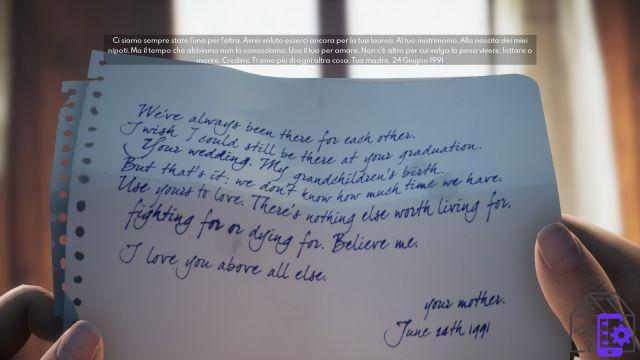 Ci siamo sempre state l'una per l'altra. Avrei voluto esserci ancora per la tua laurea. Al tuo matrimonio. Alla nascita dei miei
nipoti. Ma il tempo che abbiamo non lo conosciamo. Usa il tuo per amare. Non c'è altro per cui valga la pena vivere, lottare o
morire. Credimi. Ti amo più di ogni altra cosa. Tua madre. 24 Giugno 1991
We've always been there for each other.
I wish I could still be there at your graduation.
Your wedding. My grandchildren's birth.
But that's it: we don't know how much time we have.
Use yours to love. There's nothing else worth living for,
fighting for or dying for. Believe me.
I love you above all else.
your mother.
June 24th 1991